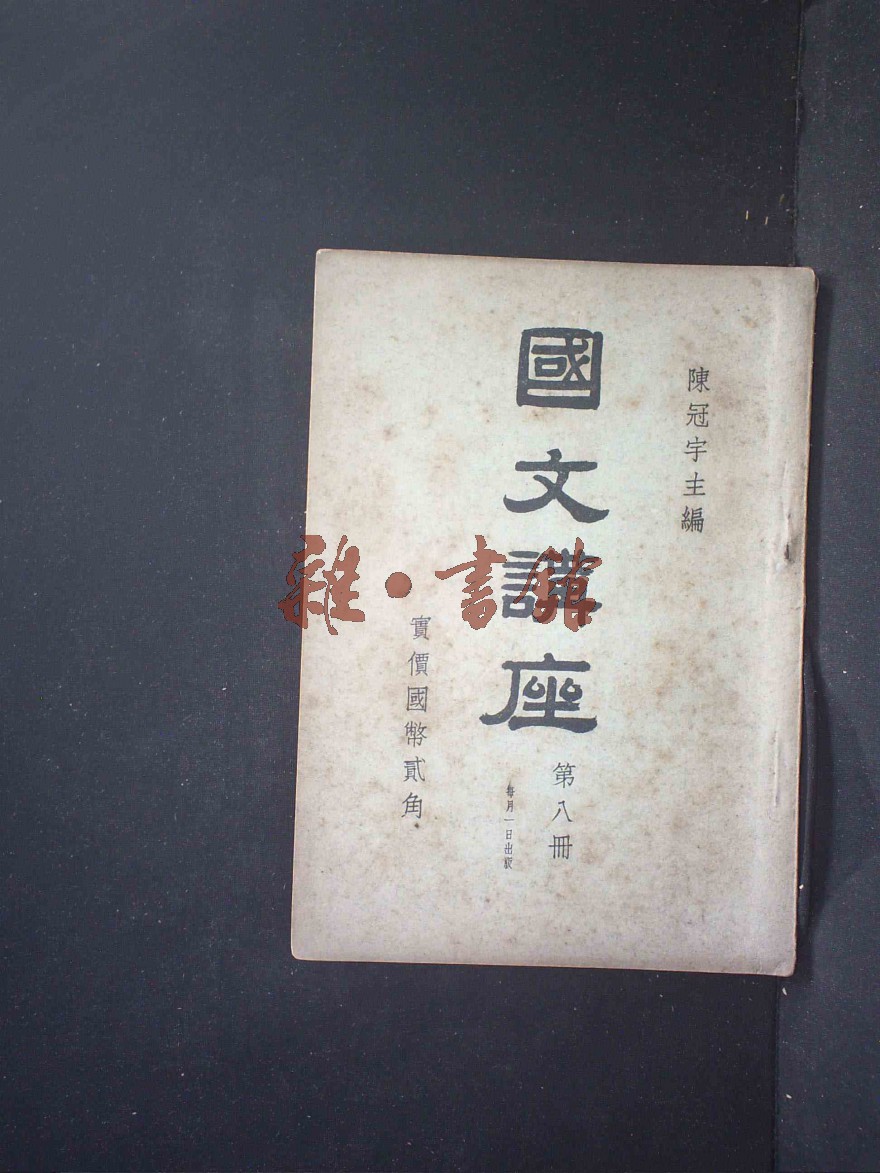 陳冠宇主編
國文講座
第八冊
每月一日出版
實價國幣貳角
雜·書館